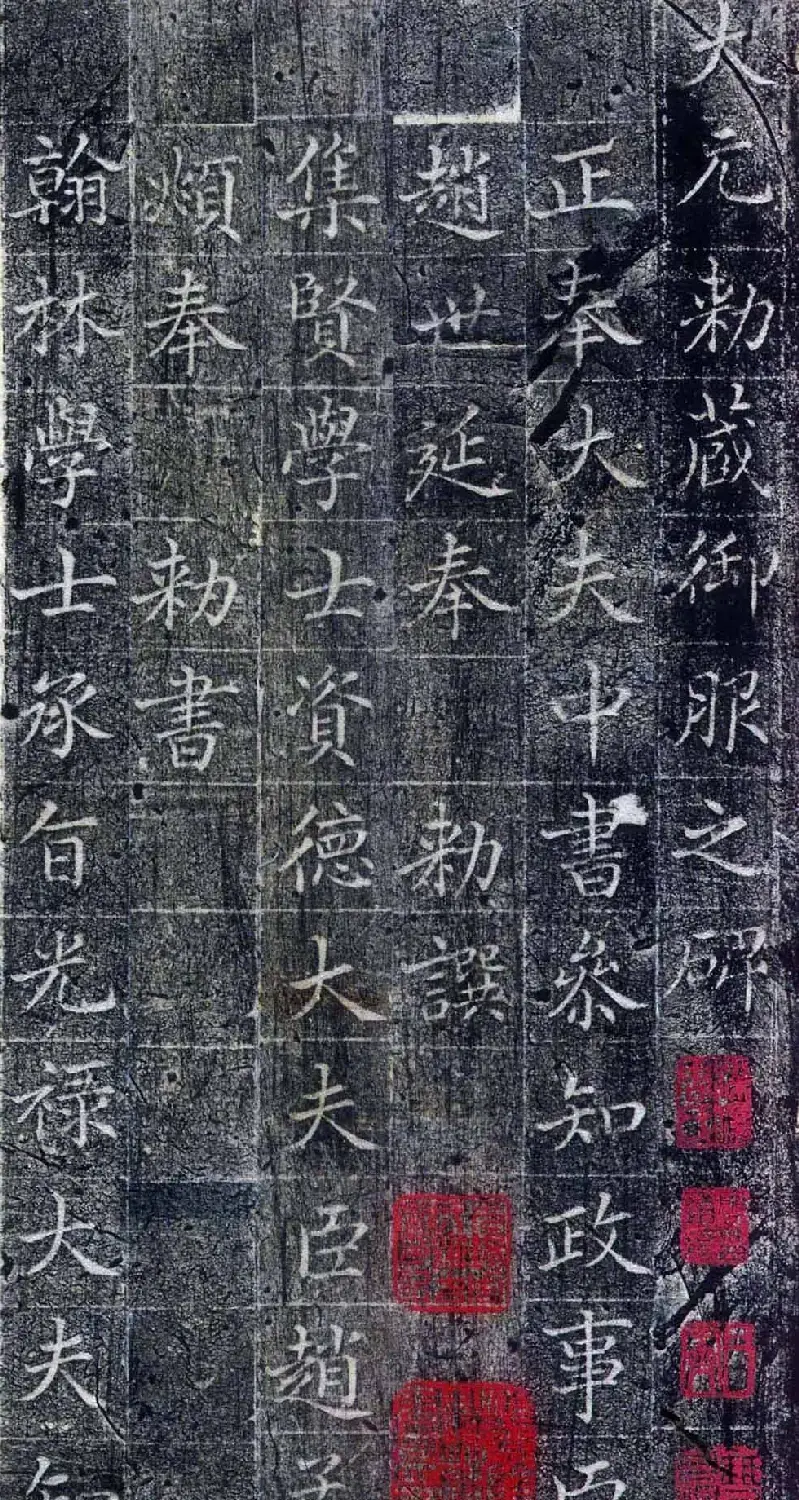 大元勑蔵御服之碑
正奉大夫中書叅知政事臣
趙世延奉 勑譔
集賢學士資德大夫臣趙孟
頫奉 勑書
翰林學士承旨光禄大夫知